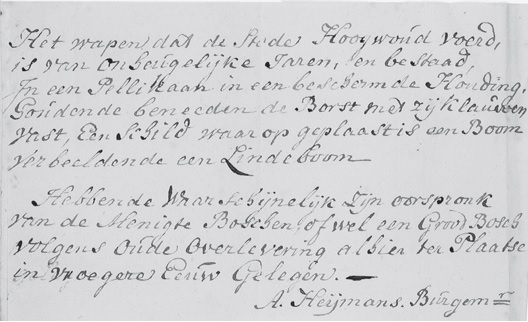 Het wapen, dat de Stede Hooywoud voerd,
is van onheugelijke Jaren, en bestaad,
In een Pellikaan in een beschermde Houding,
Houdende beneeden de Borst met zijn klauwen
vast, Een Schild waar op geplaast is een Boom
verbeeldende een Lindeboom
Hebbende Waarschijnelijk Zijn oorspronk
van de Menigte Bosschen, of wel een Groot Bosch
volgens oude overlevering alhier ter Plaatse
in vroegere Eeuw Gelegen. —
A. Heijmans. Burgemr